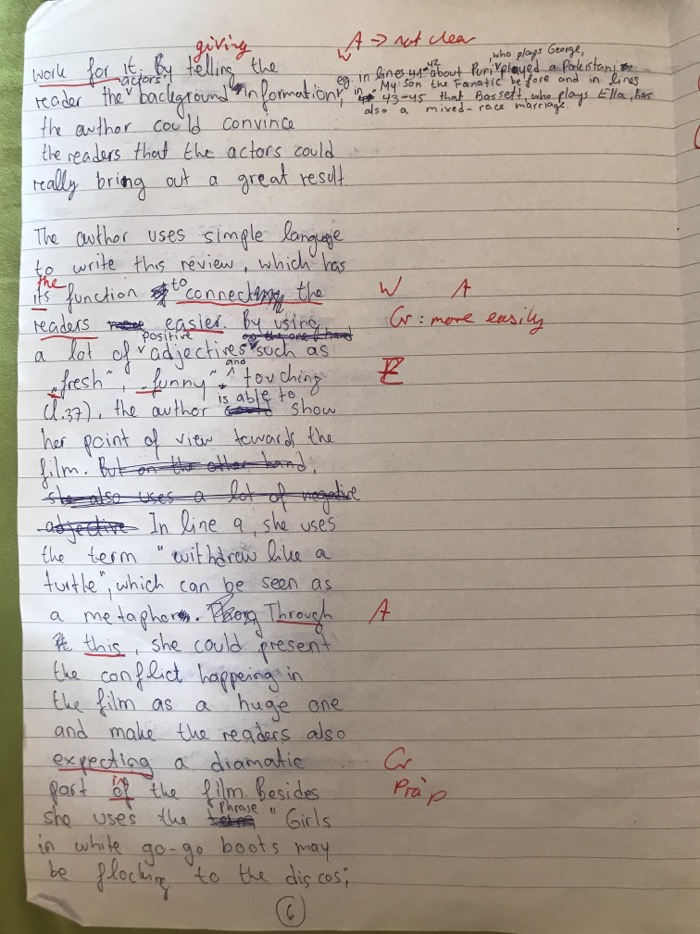 giving
W A → not clear
work for it. By telling the
reader the actors' background information, eg. in lines 41-42 about Puri, who plays George, played a Pakistani in "My Son the Fanatic" before and in lines 43-45 that Bassett, who plays Ella, has also a mixed-race marriage.
the author could convince
the readers that the actors could
really bring out a great result
The author uses simple languge
to write this review, which has
the
its function to connecting the W A
readers easier. By using Gr: more easily
a lot of positive adjectives such as
„fresh", „funny" and touching R
(l.37), the author is able to show
her point of view towards the
film. But on the other hand,
she also uses a lot of negative
adjective In line 9, she uses
the term "withdrew like a
turtle", which can be seen as
a metaphor. Through A
this, she could present
the conflict happeing in
the film as a huge one
and make the readers also
expecting a diamatic Gr
in
part of the film. Besides Präp
she uses the phrase "Girls
in white go-go boots may
be flocking to the discos;
6